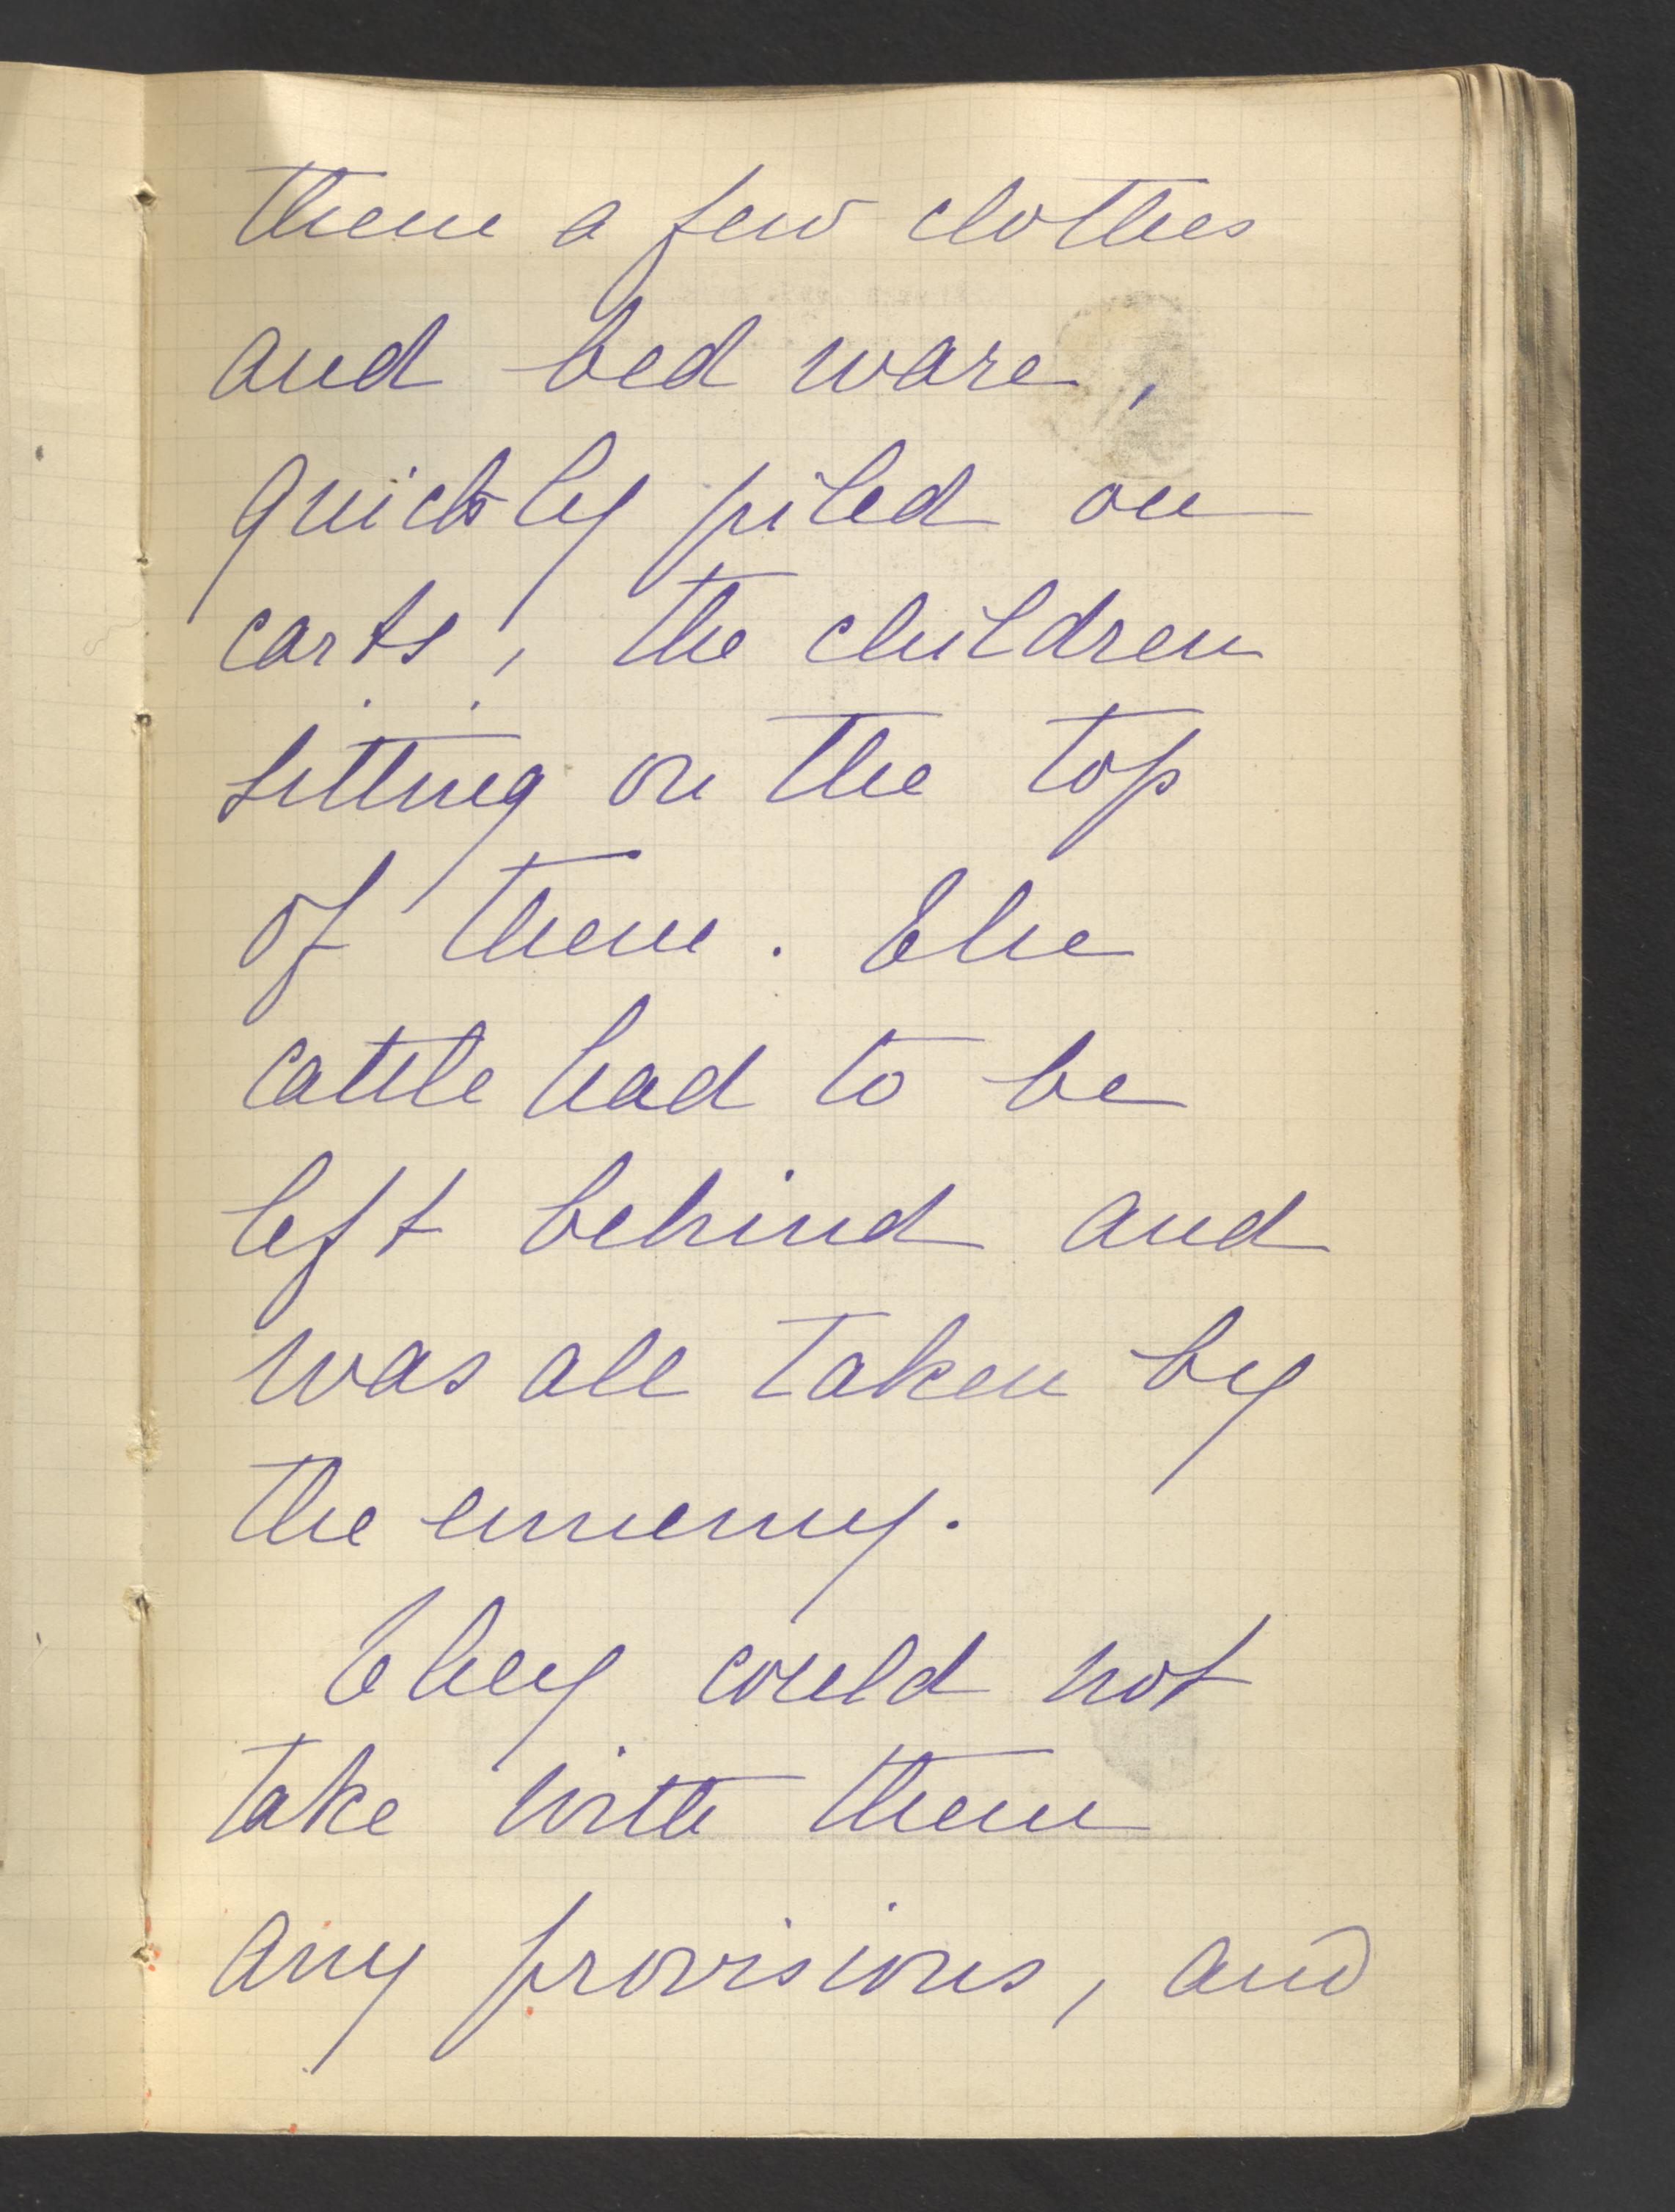 them a few clothes
and bed ware,
quickly piled on
carts, the children
sitting on the top
of them. The
cattle had to be
left behind and
was all taken by
the ennemy.
They could not
take with them
any provisions, and